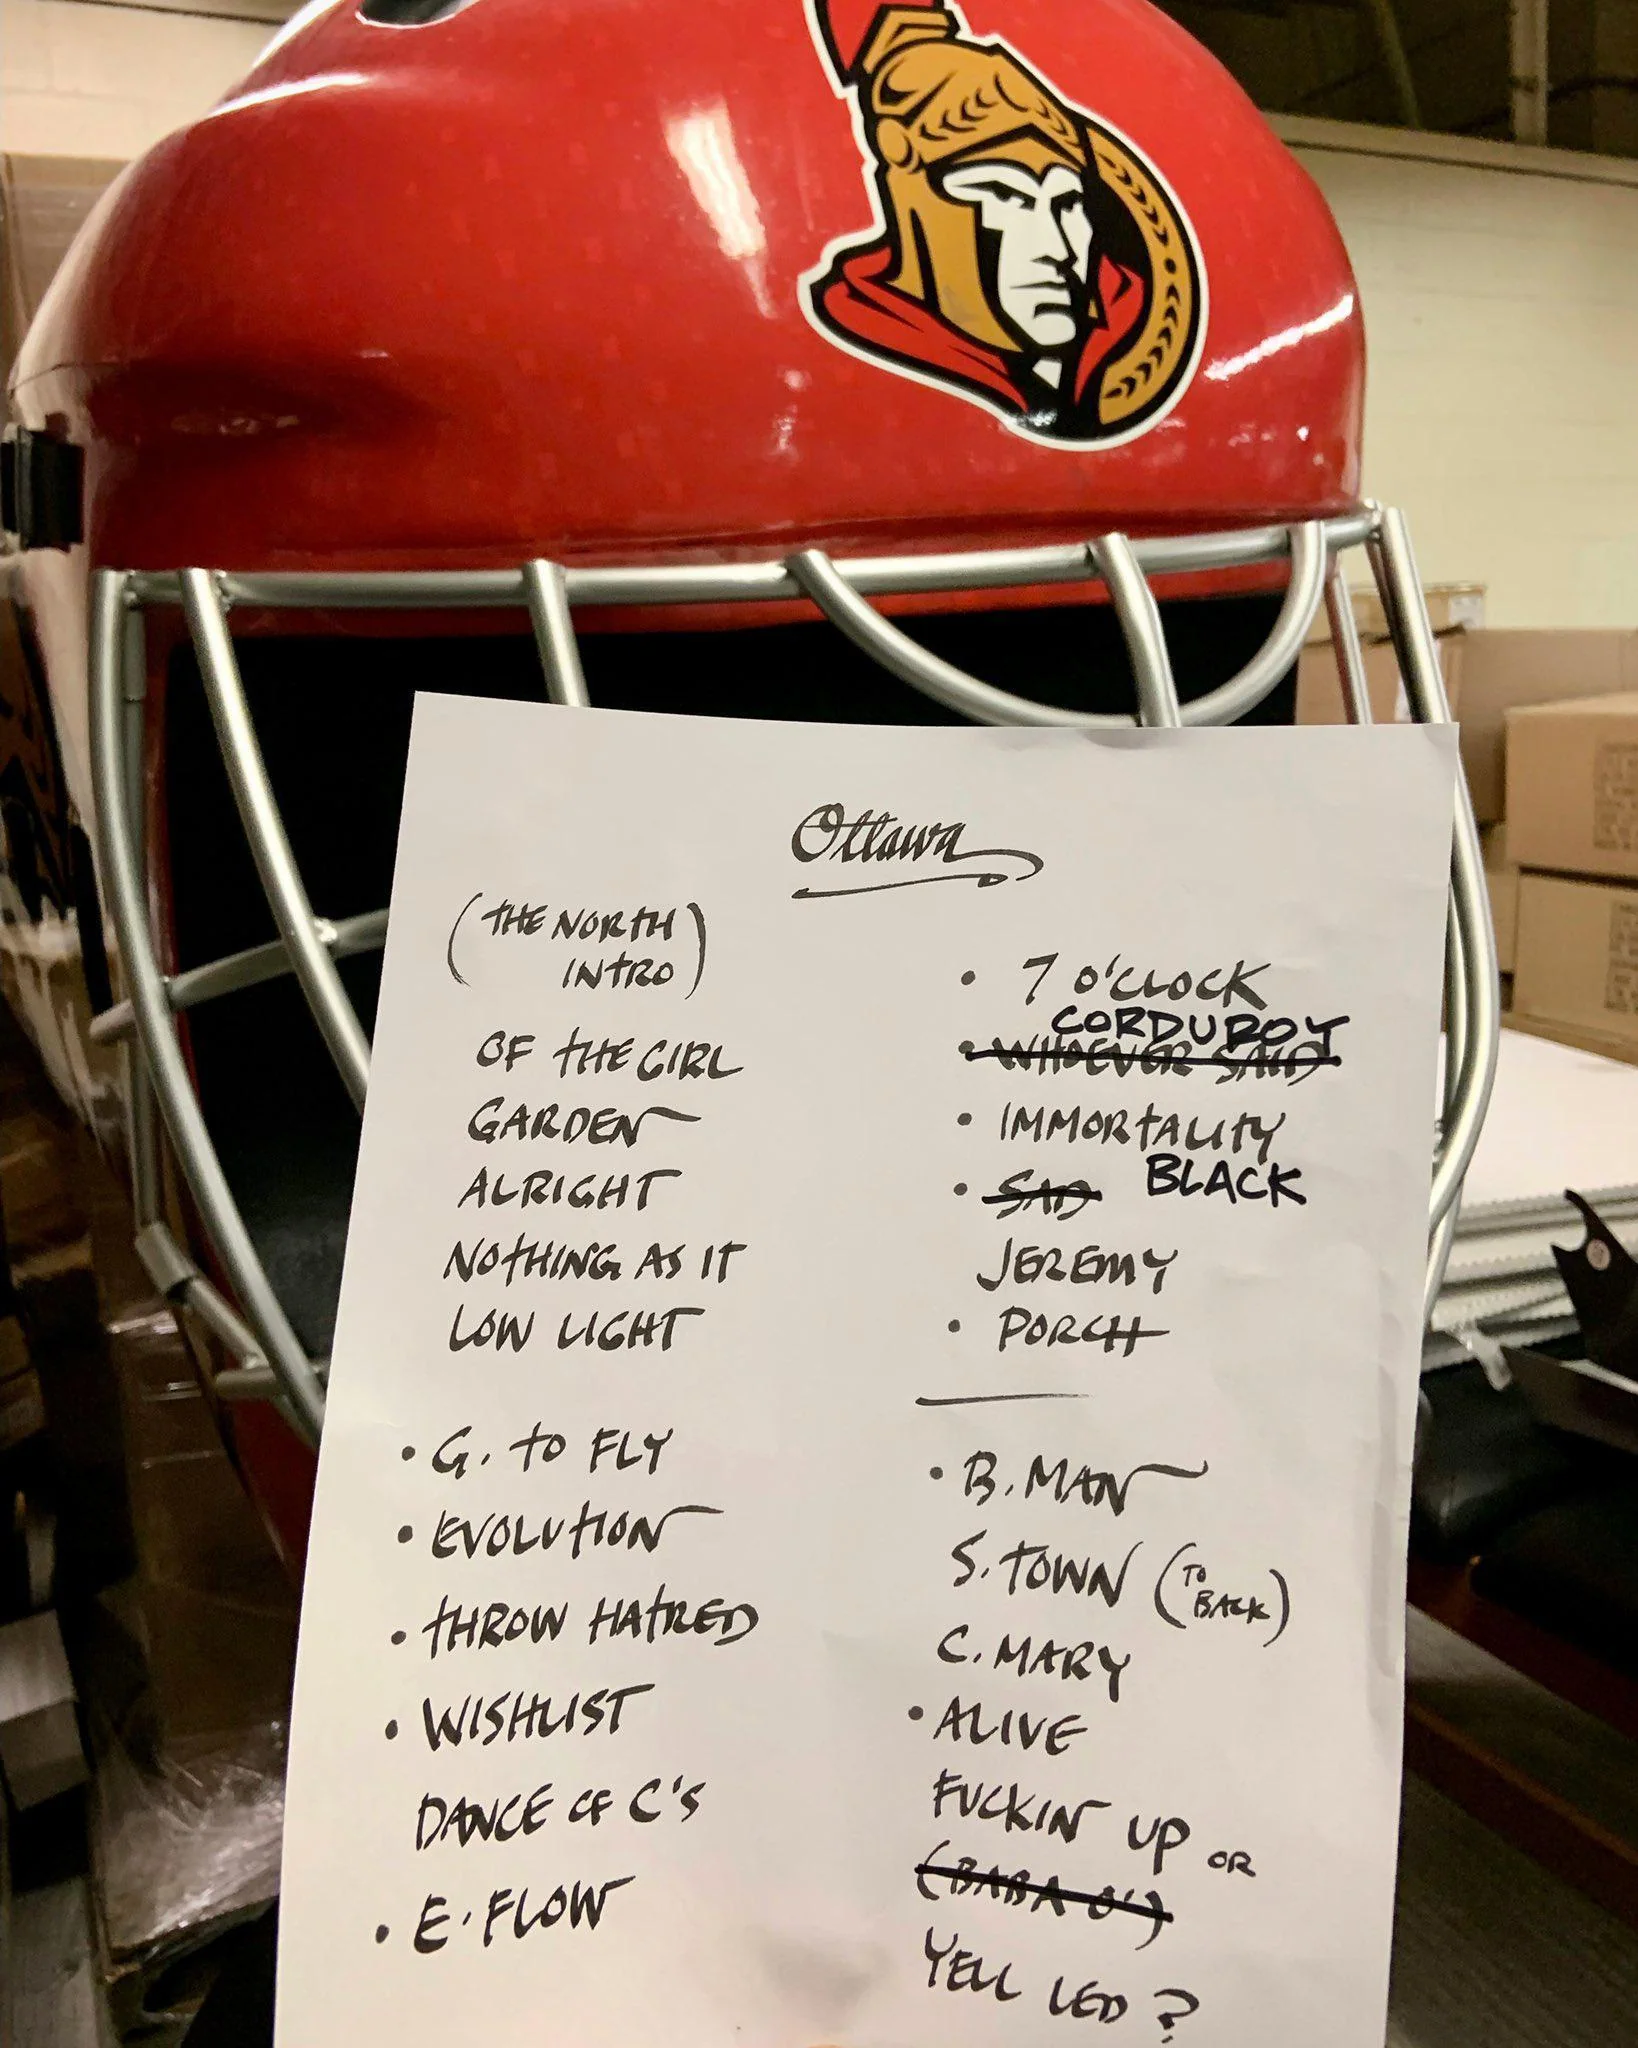 Ottawa
(THE NORTH
INTRO)
OF THE GIRL
GARDEN
ALRIGHT
NOTHING AS IT
LOW LIGHT
• G. TO FLY
• EVOLUTION
• THROW HATRED
• WISHLIST
DANCE OF C'S
• E. FLOW
• 7 O'CLOCK
CORDUROY
• WHOEVER SAID
• IMMORTALITY
• SAD BLACK
JEREMY
• PORCH
• B. MAN
S. TOWN (TO BACK)
C. MARY
• ALIVE
FUCKIN UP OR
(BABA O')
YELL LED ?